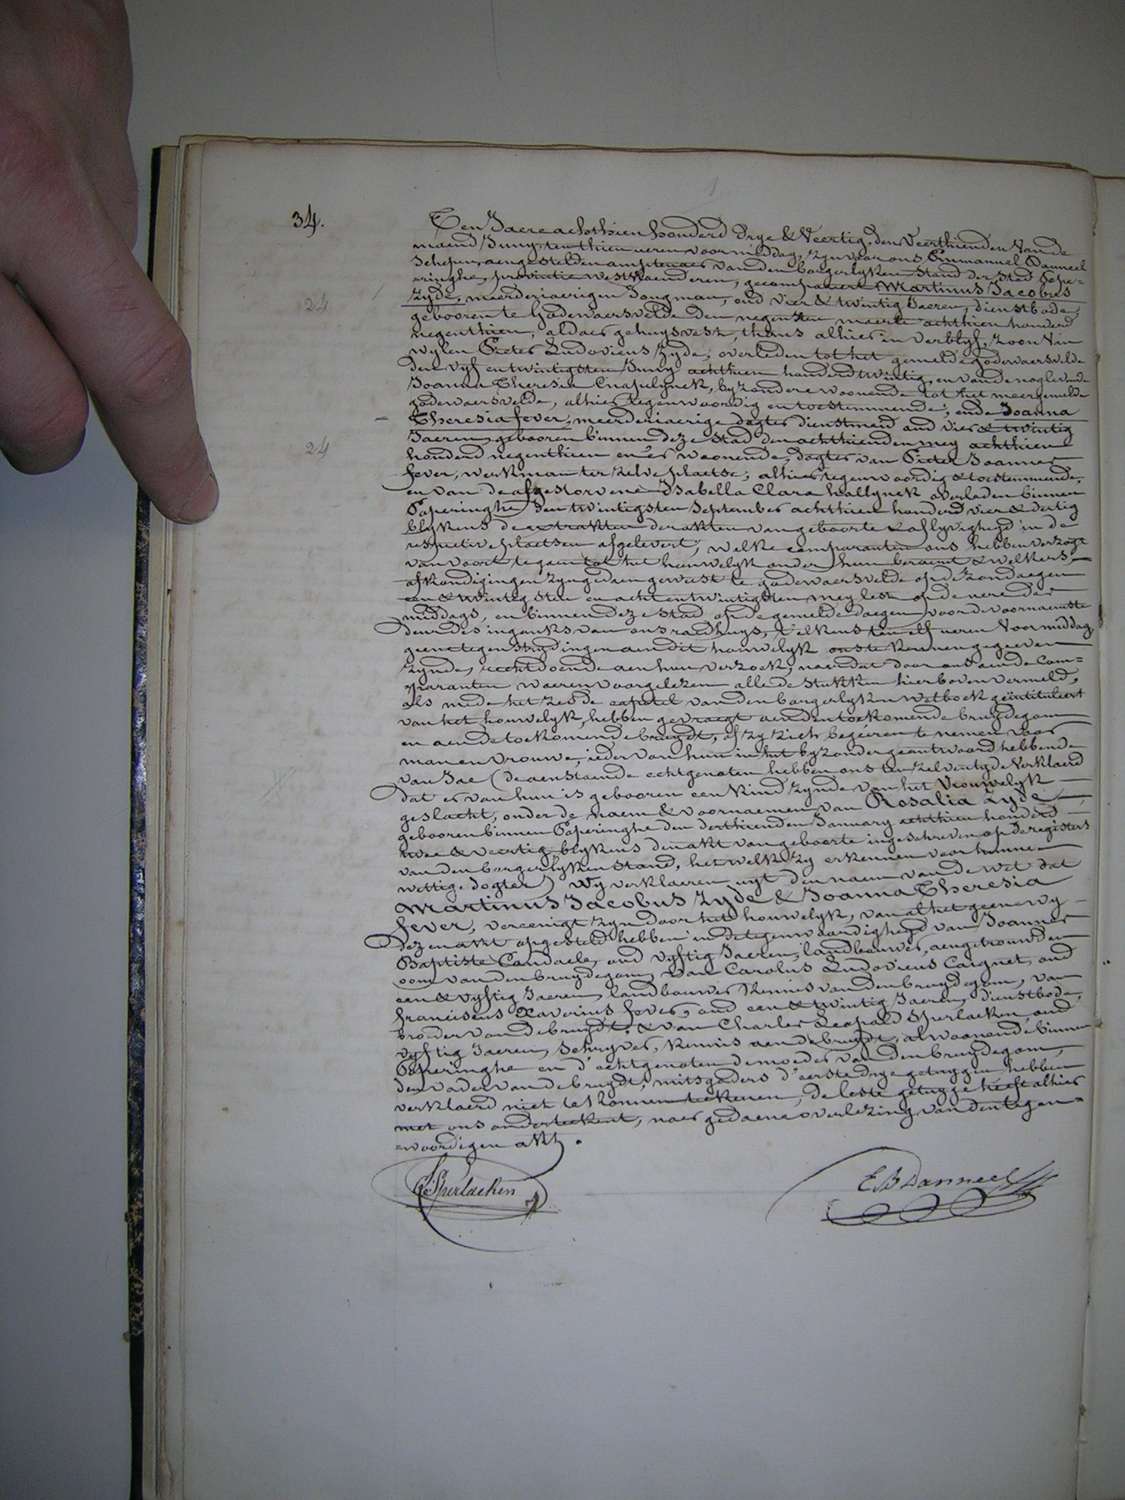 34.
Den Jaere achthien honderd drye & veertig, den veerthienden van de
maend Juny, ten thien uren voormiddag, zyn voor ons Emmanuel Danneel
Schepen, aengestelden amptenaer van den borgerlyken stand der stad Pope-
ringhe, provintie westvlaenderen, gecompareert Martinus Jacobus
Zyde, meerderjaerigen Jongman, oud vier & twintig Jaeren, dienstbode,
gebooren te Godewaersvelde den negensten meerte achthien honderd
24
negenthien, aldaer gehuysvest, thans alhier in verblyf, zoon van
wylen Pieter Ludovicus Zyde, overleden tot het gemelde godewaersvelde
den vyf en twintigsten Juny achthien honderd twintig, en van de nog levende
Joanna Theresia Cnapelynck, byzondere woonende tot het meergemelde
godewaersvelde, alhier tegenwoordig en toestemmende; ende Joanna
Theresia fever, meerderjaerige dogter dienstmeid oud vier & twintig
24
Jaeren, gebooren binnen deze stad den achthienden mey achthien
honderd negenthien en er woonende, dogter van Pieter Joannes
fever, werkman ter zelve plaetse, alhier tegenwoordig & toestemmende,
en van de afgestorvene Isabella Clara hallynck overleden binnen
Poperinghe den twintigsten September achthien honderd vier & dertig
blykens de extrakten der akten van geboorte & aflyvigheyd in de
respective plaetsen afgelevert, welke comparanten ons hebben verzogt
van voort te gaen tot het houwelyk onder hun beraemt & welkers
afkondigingen zyn gedaen geweest te godewaersvelde op de zondagen
een & twintigsten en acht en twintigsten mey lest op de neren der
middags, en binnen deze stad op de gemelde daegen, voor de voornaemste
deur des ingangs van ons raedhuys, telkens ten elf uren voormiddag,
geene tegenstrydingen aen dit houwelyk ons ter kennen gegeven
zynde, rechtdoende aen hun verzoek, naer dat door ons aen de Com-
paranten waeren voorgelezen alle de stukken hier boven vermeld,
als mede het zesde capittel van den borgerlyken wetboek geïntituleert
van het houwelyk, hebben gevraegt aen den toekomende bruydegom
en aen de toekomende bruydt, of zy zich begeeren te nemen voor
man en vrouwe, ieder van hun in het byzonder geantwoord hebbende
van Jae (de aenstaende echtgenoten hebben ons ten zelven tyde verklaerd
dat er van hun is gebooren een kind zynde van het vrouwelyk
geslacht, onder de naem & voornaemen van Rosalia Zyde
gebooren binnen Poperinghe den derthienden January achthien honderd
twee & veertig blykens den akt van geboorte ingeschreven op de registers
van den borgerlyken stand, het welk zy erkennen voor hunne
wettige dogter) wy verklaeren uyt den naem van de wet dat
Martinus Jacobus Zyde & Joanna Theresia
fever, vereenigt zyn door het houwelyk, van al het geene wy
dezen akt opgesteld hebben in de tegenwoordigheyd van Joannes
Baptiste Candaele, oud vyftig Jaeren, landbouwer, aengetrouwden
oom van den bruydegom, van Carolus Ludovicus Caignet, oud
een & vyftig Jaeren, landbouwer, kennis van den bruydegom, van
franciscus Xaverius fever, oud een & twintig Jaeren, dienstbode,
broeder van de bruydt, & van Charles Leopold Sperlaeken, oud
vyftig Jaeren, Schryver, kennis aen de bruydt, al woonende binnen
Poperinghe en d'echtgenoten de moeder van den bruydegom,
den vader van de bruydt, mitsgaders d'eerste drye getuygen hebben
verklaerd niet te konnen teekenen, de leste getuyge heeft alhier
met ons onderteekent, naer gedaene overlezing van den tegen-
woordigen akt.
Sperlaeken
E B Danneel